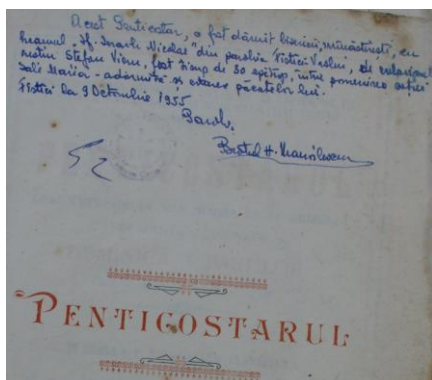 Acest Penticostar, a fost dăruit bisericii mănăstirești, cu
hramul „Sf. Ierarh Nicolae" din parohia Fistici-Vaslui, de
creștin Ștefan Vieru, fost timp de 30 epitrop, întru pomenirea
sale Maria - adormită și iertarea păcatelor lui.
Fistici la 9 Octombrie 1955
Paroh,
PENTICOSTARUL